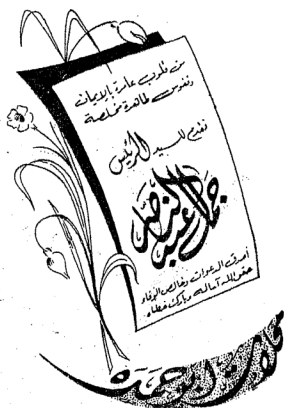 من قلوب عامرة بالإيمان
ونفوس طاهرة مخلصة
نقدم للسيد الرئيس
جمال عبد الناصر
أصدق الدعوات وخالص الوفاء
حقق الله آماله وبارك خطاه
محلات